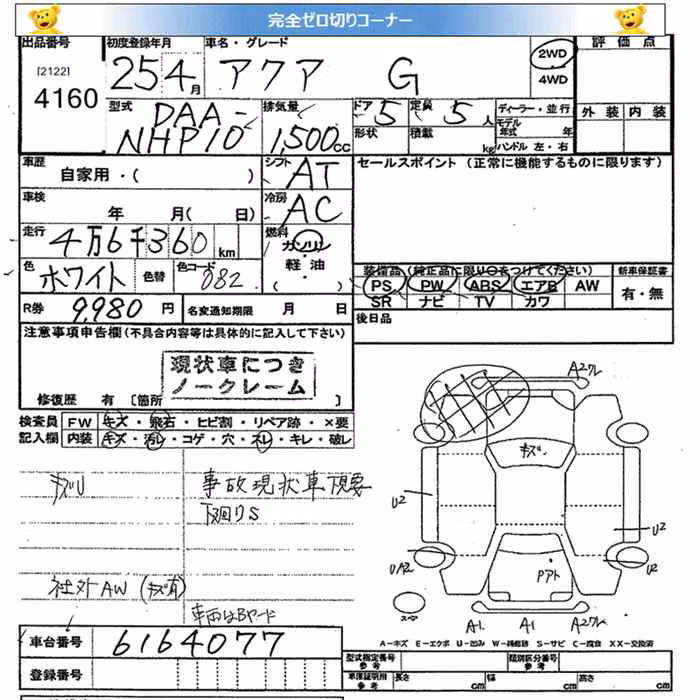 完全ゼロ切りコーナー
出品番号 初度登録年月 車名・グレード 2WD 評価点
[2122] 25 4月 アクア G 4WD
4160
型式 DAA- 排気量 ドア 5 定員 5人 ディーラー・並行 外装 内装
NHP10 1,500cc 形状 積載 kg モデル年式 年
ハンドル 左・右
車歴 シフト AT セールスポイント (正常に機能するものに限ります)
自家用・( )
車検 冷房 AC
年 月( 日)
走行 4万6千360km 燃料 ガソリン
軽・油
色 ホワイト 色替 色コード 082 装備品(純正品に限りUOをつけてください) 新車保証書
PS PW ABS エアB AW 有・無
SR ナビ TV カワ
R券 9,980円 名変通知期限 月 日 後日品
注意事項申告欄(不具合内容等は具体的に記入して下さい)
現状車につき
ノークレーム
修復歴 有 [箇所 ]
検査員 FW キズ・飛石・ヒビ割・リペア跡・×要
記入欄 内装 キズ・汚レ・コゲ・穴・スレ・キレ・破レ
事故現状車下見要
下廻りS
社外AW (キズ有)
車両はBヤード
車台番号 6164077
登録番号
A2クレ
キズ
U2
U2
UA2
U2
Pアト
スペア
A1 A1 A2クレ
A-キズ E-エクボ U-凹み W-補修跡 S-サビ C-腐食 XX-交換済
型式指定番号 参考 類別区分番号 参考
車庫証明用 参考 長さ cm 幅 cm 高さ cm